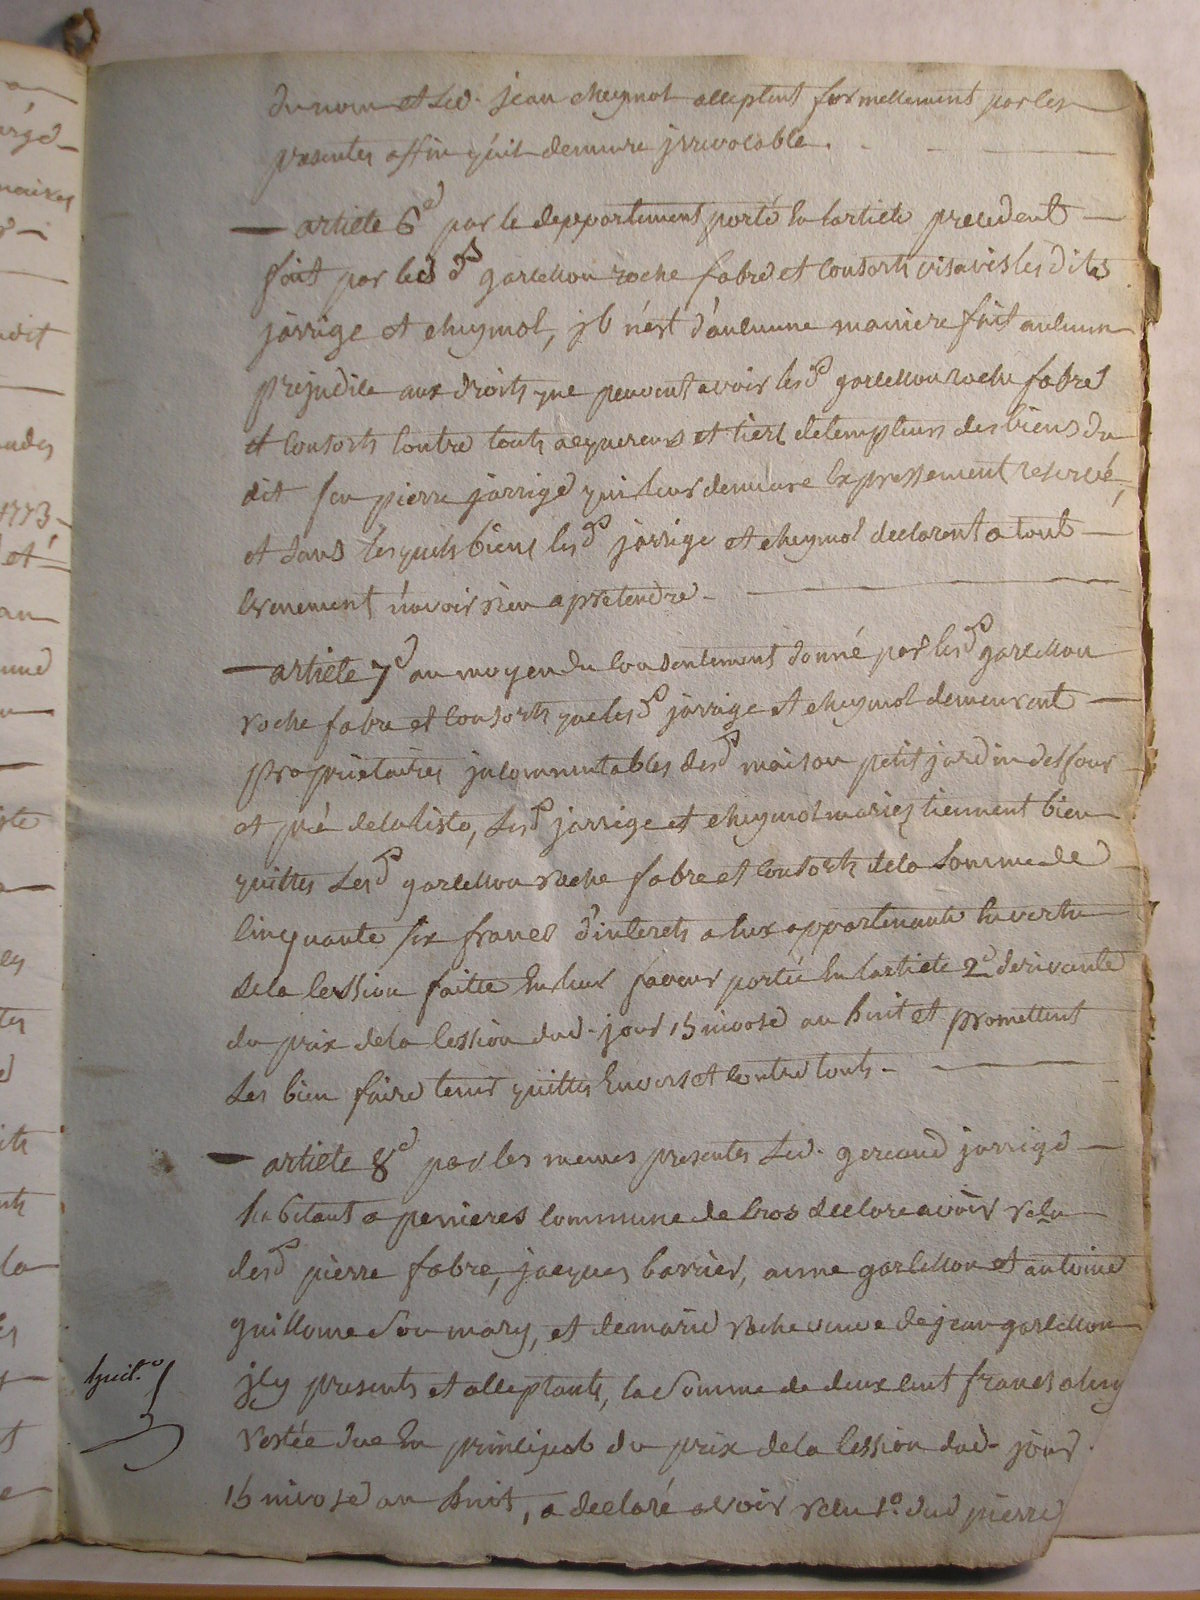 du nom et led. jean cheymol acceptent formellement par les
presentes affin qu'il demeure jrrevocable.
article 6e par le depportement porté en l'article precedent
fait par les ds garcellon roche fabre et consorts visavis les dites
jarrige et cheymol, jl n'est d'aucune maniere fait aucun
prejudice aux droits que peuvent avoir lesds garcellon roche fabre
et consorts contre touts acquereurs et tiers detempteurs des biens du
dit feu pierre jarrige qui leur demeure expressement reservé,
et dans lesquels biens lesds jarrige et cheymol declarent a tout
evenement n'avoir rien a pretendre.
article 7e au moyen du consentement donné par lesds garcellon
roche fabre et consorts que lesds jarrige et cheymol demeurent
proprietaires jncommutables desds maison petit jardin
et pré delaliste, lesds jarrige et cheymol mariez tiennent bien
quittes lesds garcellon roche fabre et consorts de la somme de
cinquante six francs d'interets a eux appartenante en vertu
de la cession faitte en leur faveur portée en l'article 2e derivante
du prix de la cession dud. jour 15 nivose an huit et promettent
les bien faire tenir quittes envers et contre touts.
article 8e par les memes presentes led. geraud jarrige
habitant a perieres commune de cros declare avoir recu
desds pierre fabre, jacques barrier, anne garcellon et antoine
guillaume son mary, et de marie roche veuve de jean garcellon
jcy presents et acceptants, la somme de deux cent francs a luy
restée due en principal du prix de la cession dud. jour
15 nivose an huit, a declaré avoir recu 1o. dud pierre